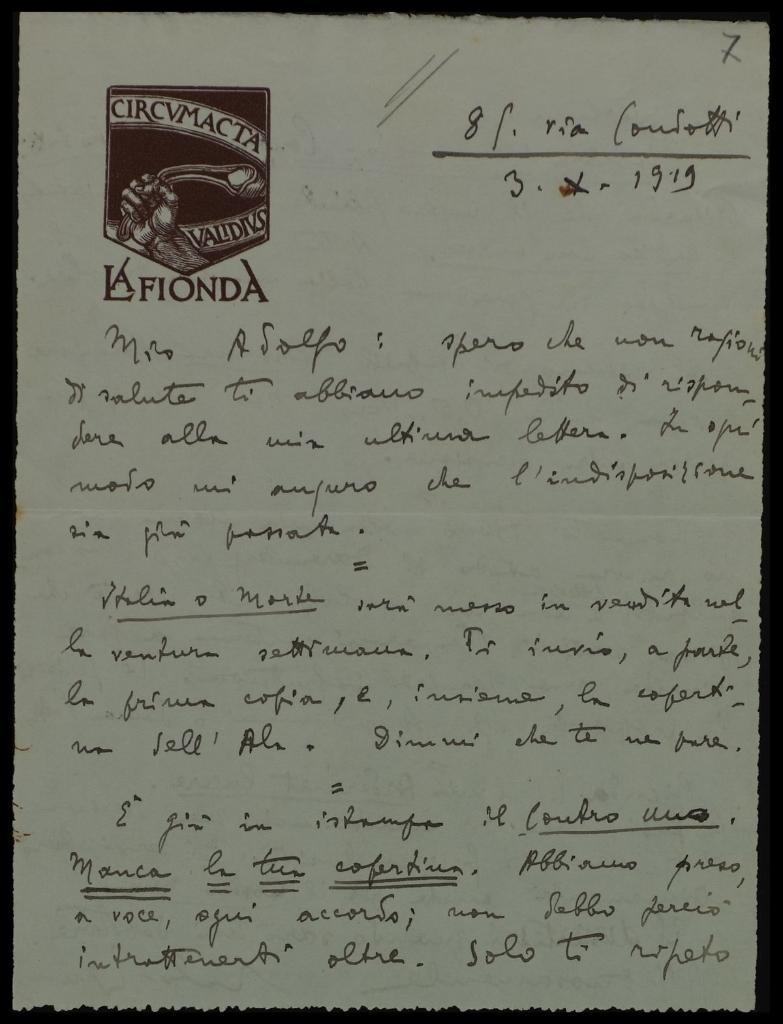 7
CIRCVMACTA
VALIDIVS
LA FIONDA
85. via Condotti
3. X. 1919
Mio Adolfo: spero che non ragioni
di salute ti abbiano impedito di rispon-
dere alla mia ultima lettera. In ogni
modo mi auguro che l'indisposizione
sia già passata.
=
Italia o Morte sarà messo in vendita nel-
la ventura settimana. Ti invio, a parte,
la prima copia, e, insieme, la coperti-
na dell'Ala. Dimmi che te ne pare.
=
È già in istampa il Contro uno.
Manca la tua copertina. Abbiamo preso,
a voce, ogni accordo; non debbo perciò
intrattenerti oltre. Solo ti ripeto